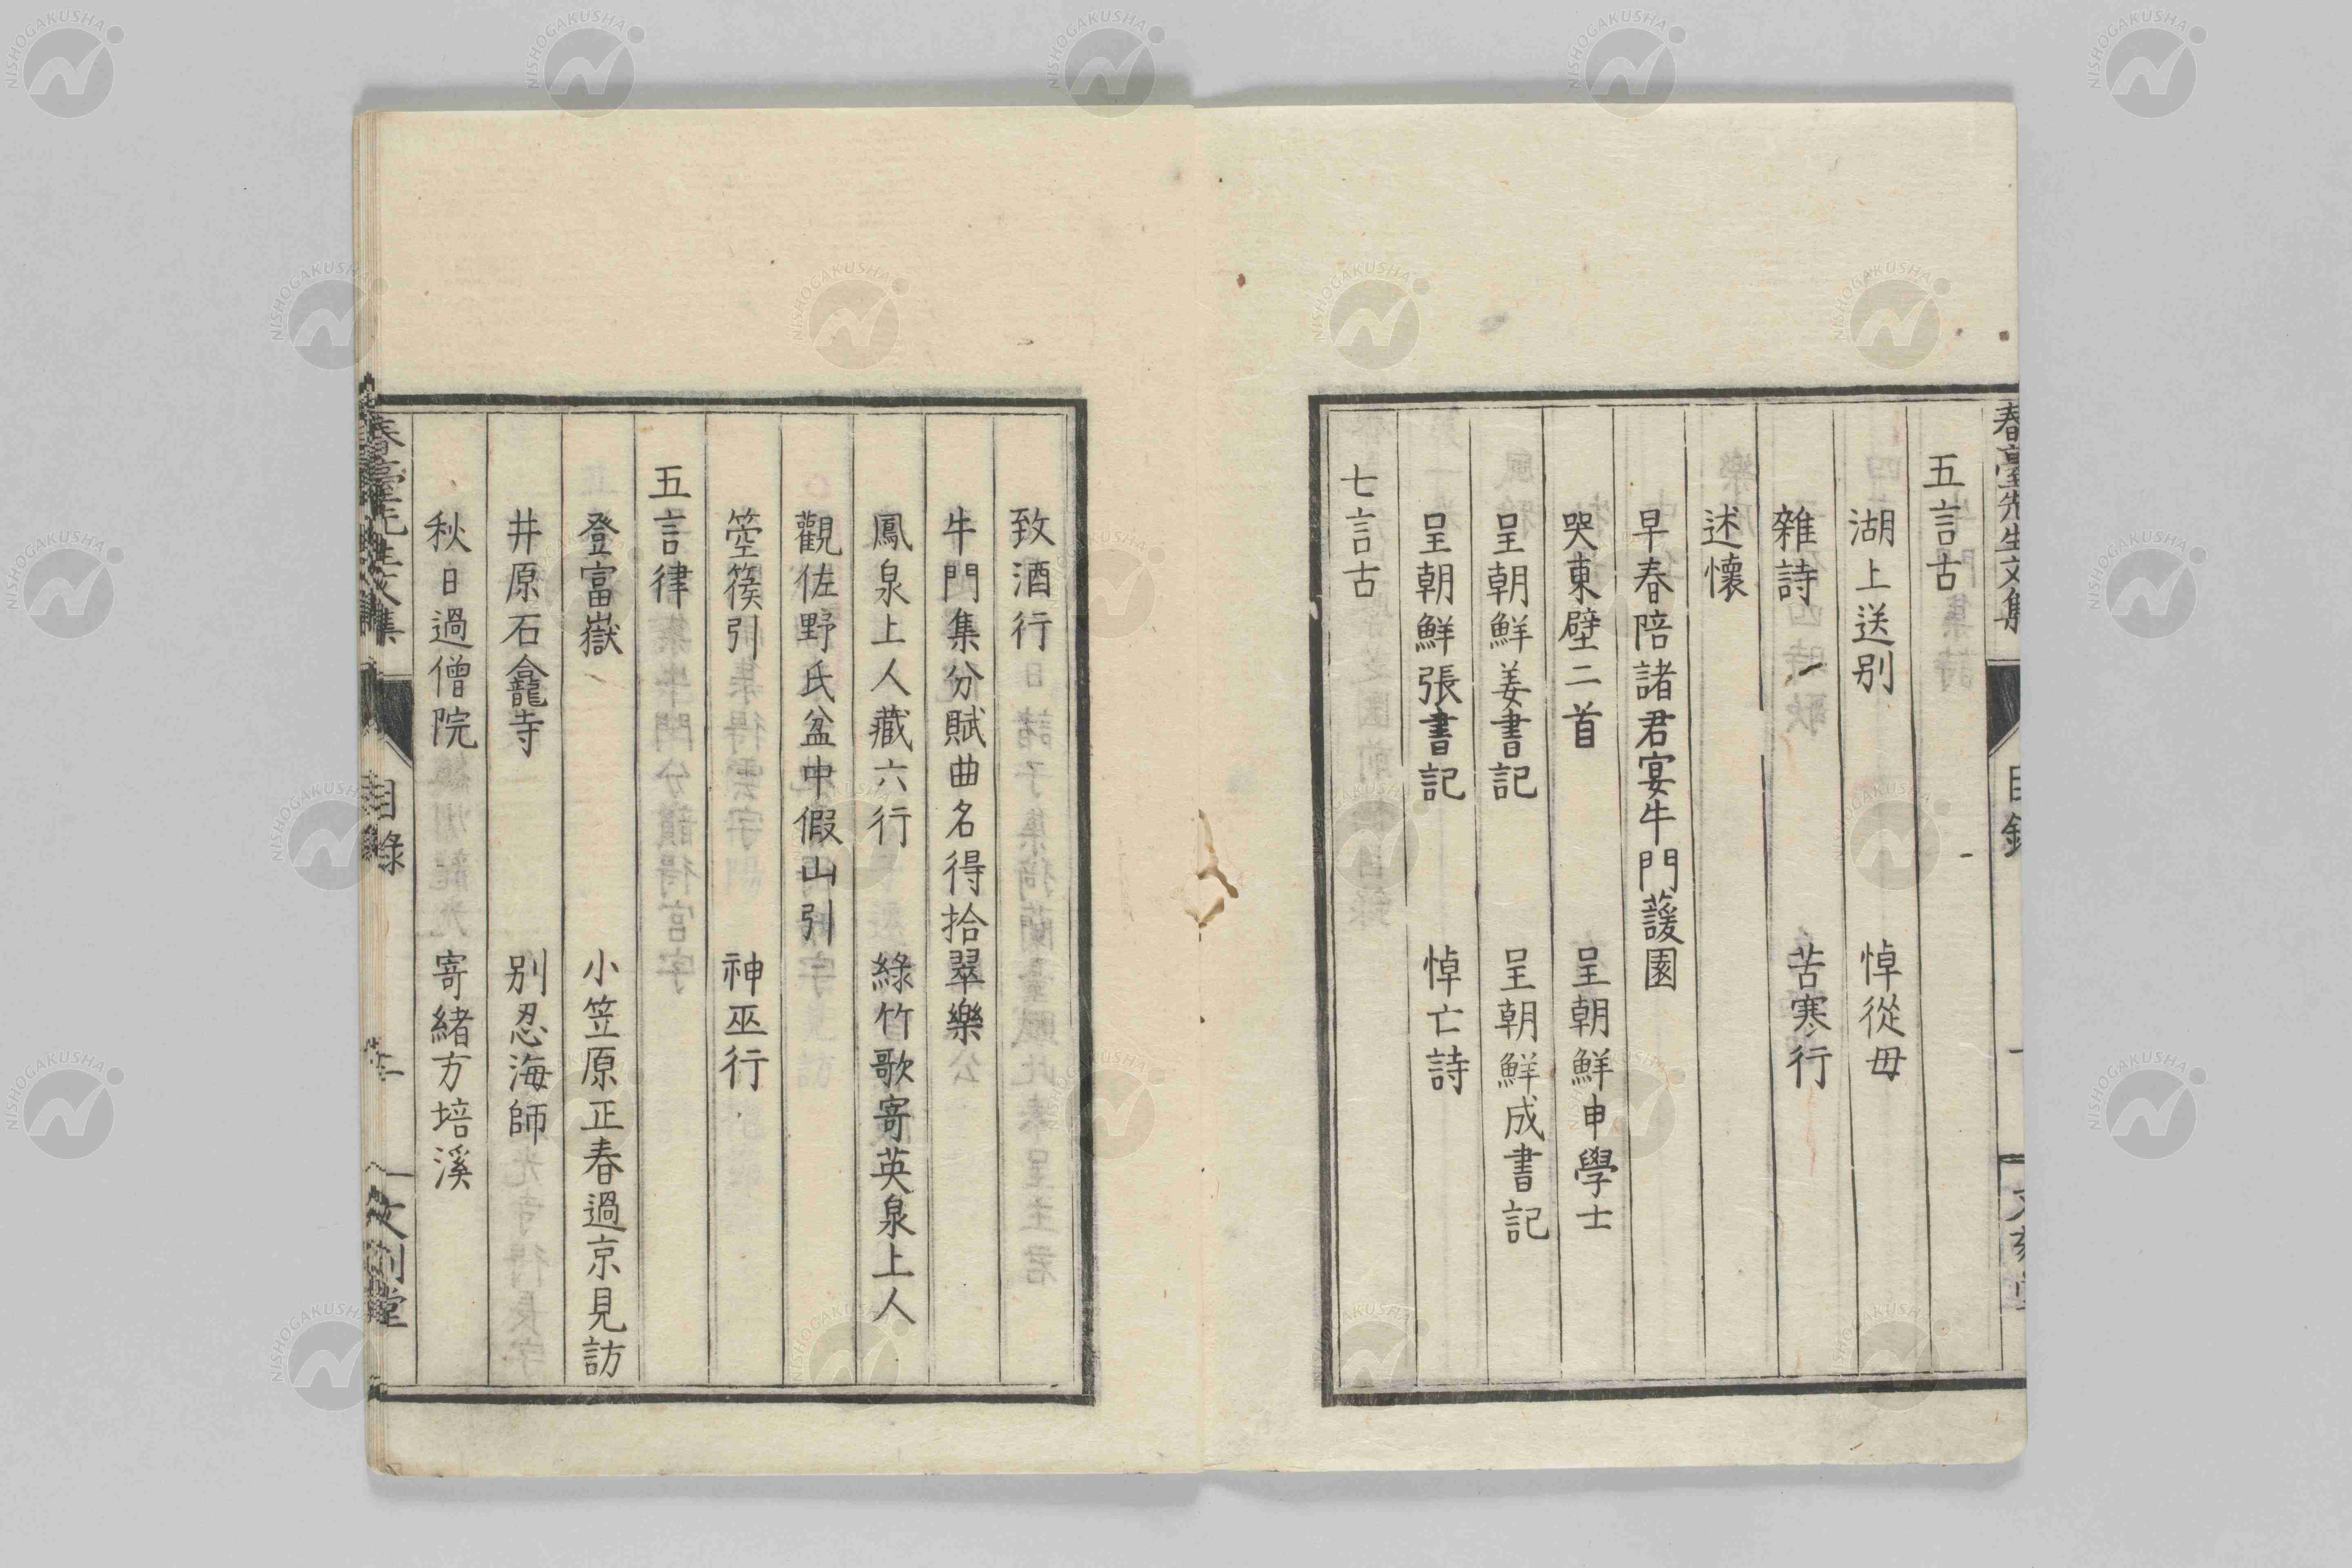 春臺先生文集
目錄
五言古
湖上送別　悼從母
雜詩　苦寒行
述懷
早春陪諸君宴牛門蘐園
哭東壁二首　呈朝鮮申學士
呈朝鮮姜書記　呈朝鮮成書記
呈朝鮮張書記　悼亡詩
七言古
致酒行
牛門集分賦曲名得拾翠樂
鳳泉上人藏六行　綠竹歌寄英泉上人
觀佐野氏盆中假山引
箜篌引　神巫行
五言律
登富嶽　小笠原正春過京見訪
井原石龕寺　別忍海師
秋日過僧院　寄緒方培溪
春臺先生文集
目錄
二
NISHOGAKUSHA